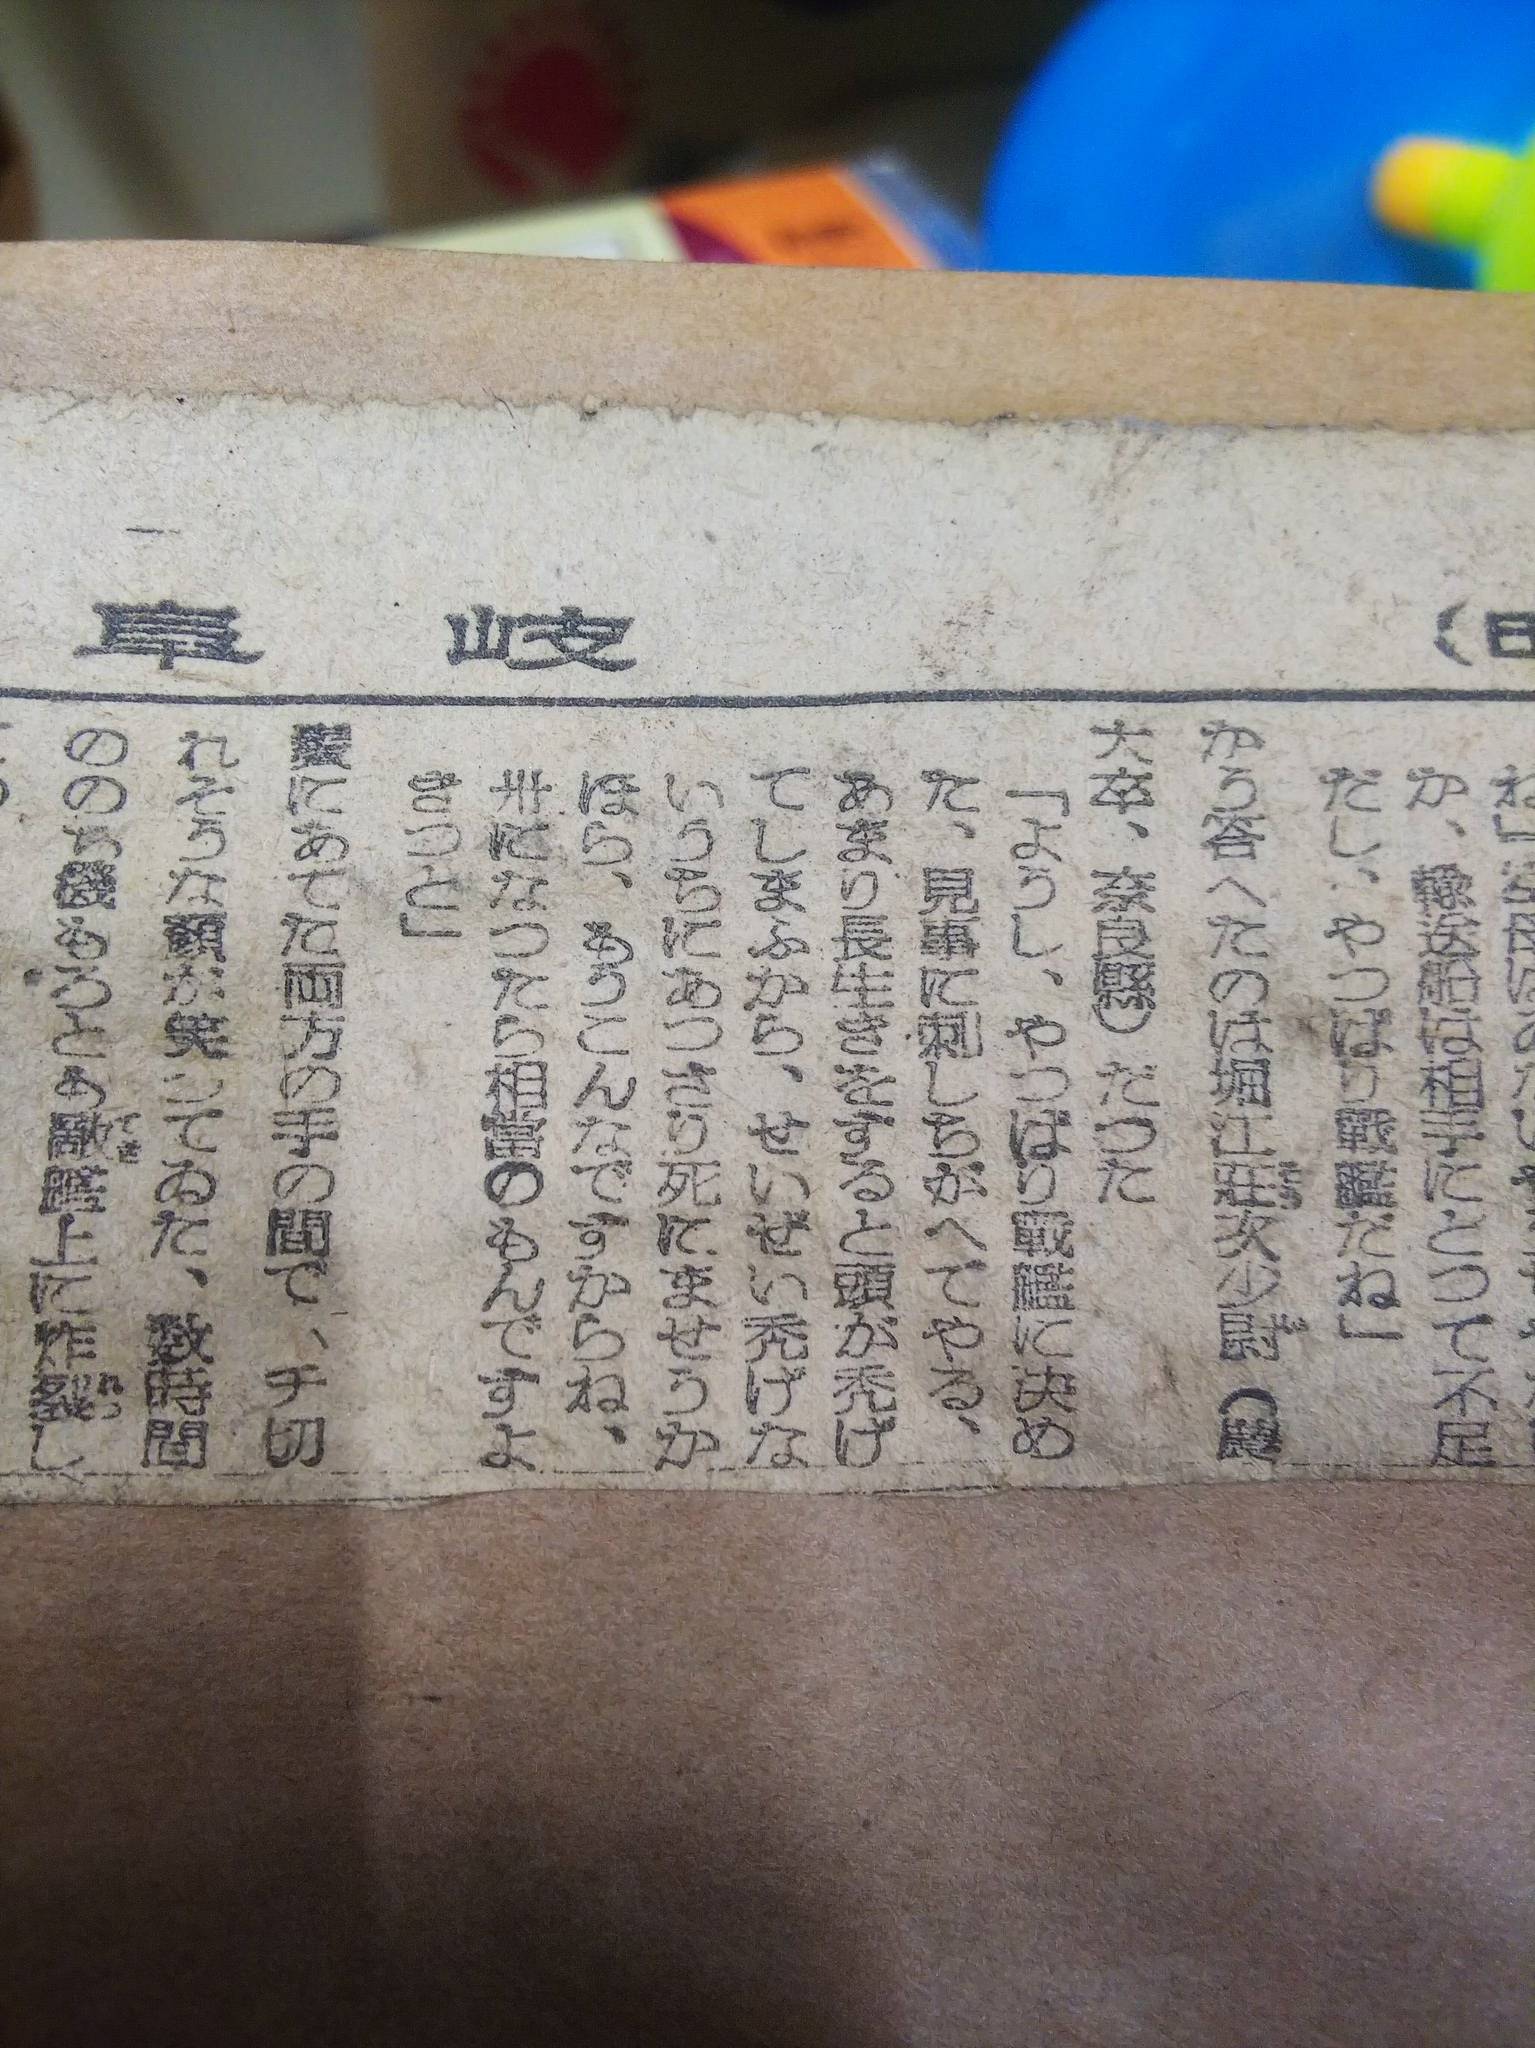 岐阜
（日
ね」
か、輸送船は相手にとつて不足
だし、やつぱり戦艦だね」
かう答へたのは堀江荘次少尉（
大卒、奈良縣）だつた
「ようし、やつぱり戦艦に決め
た、見事に刺しちがへてやる、
あまり長生きをすると頭が禿げ
てしまふから、せいぜい禿げな
いうちにあつさり死にませうか
ほら、もうこんなですからね、
卅になつたら相當のもんですよ
きつと」
にあてた両方の手の間で、チ切
れそうな顔が笑つてゐた、数時間
ののち機もろとも敵艦上に炸裂し